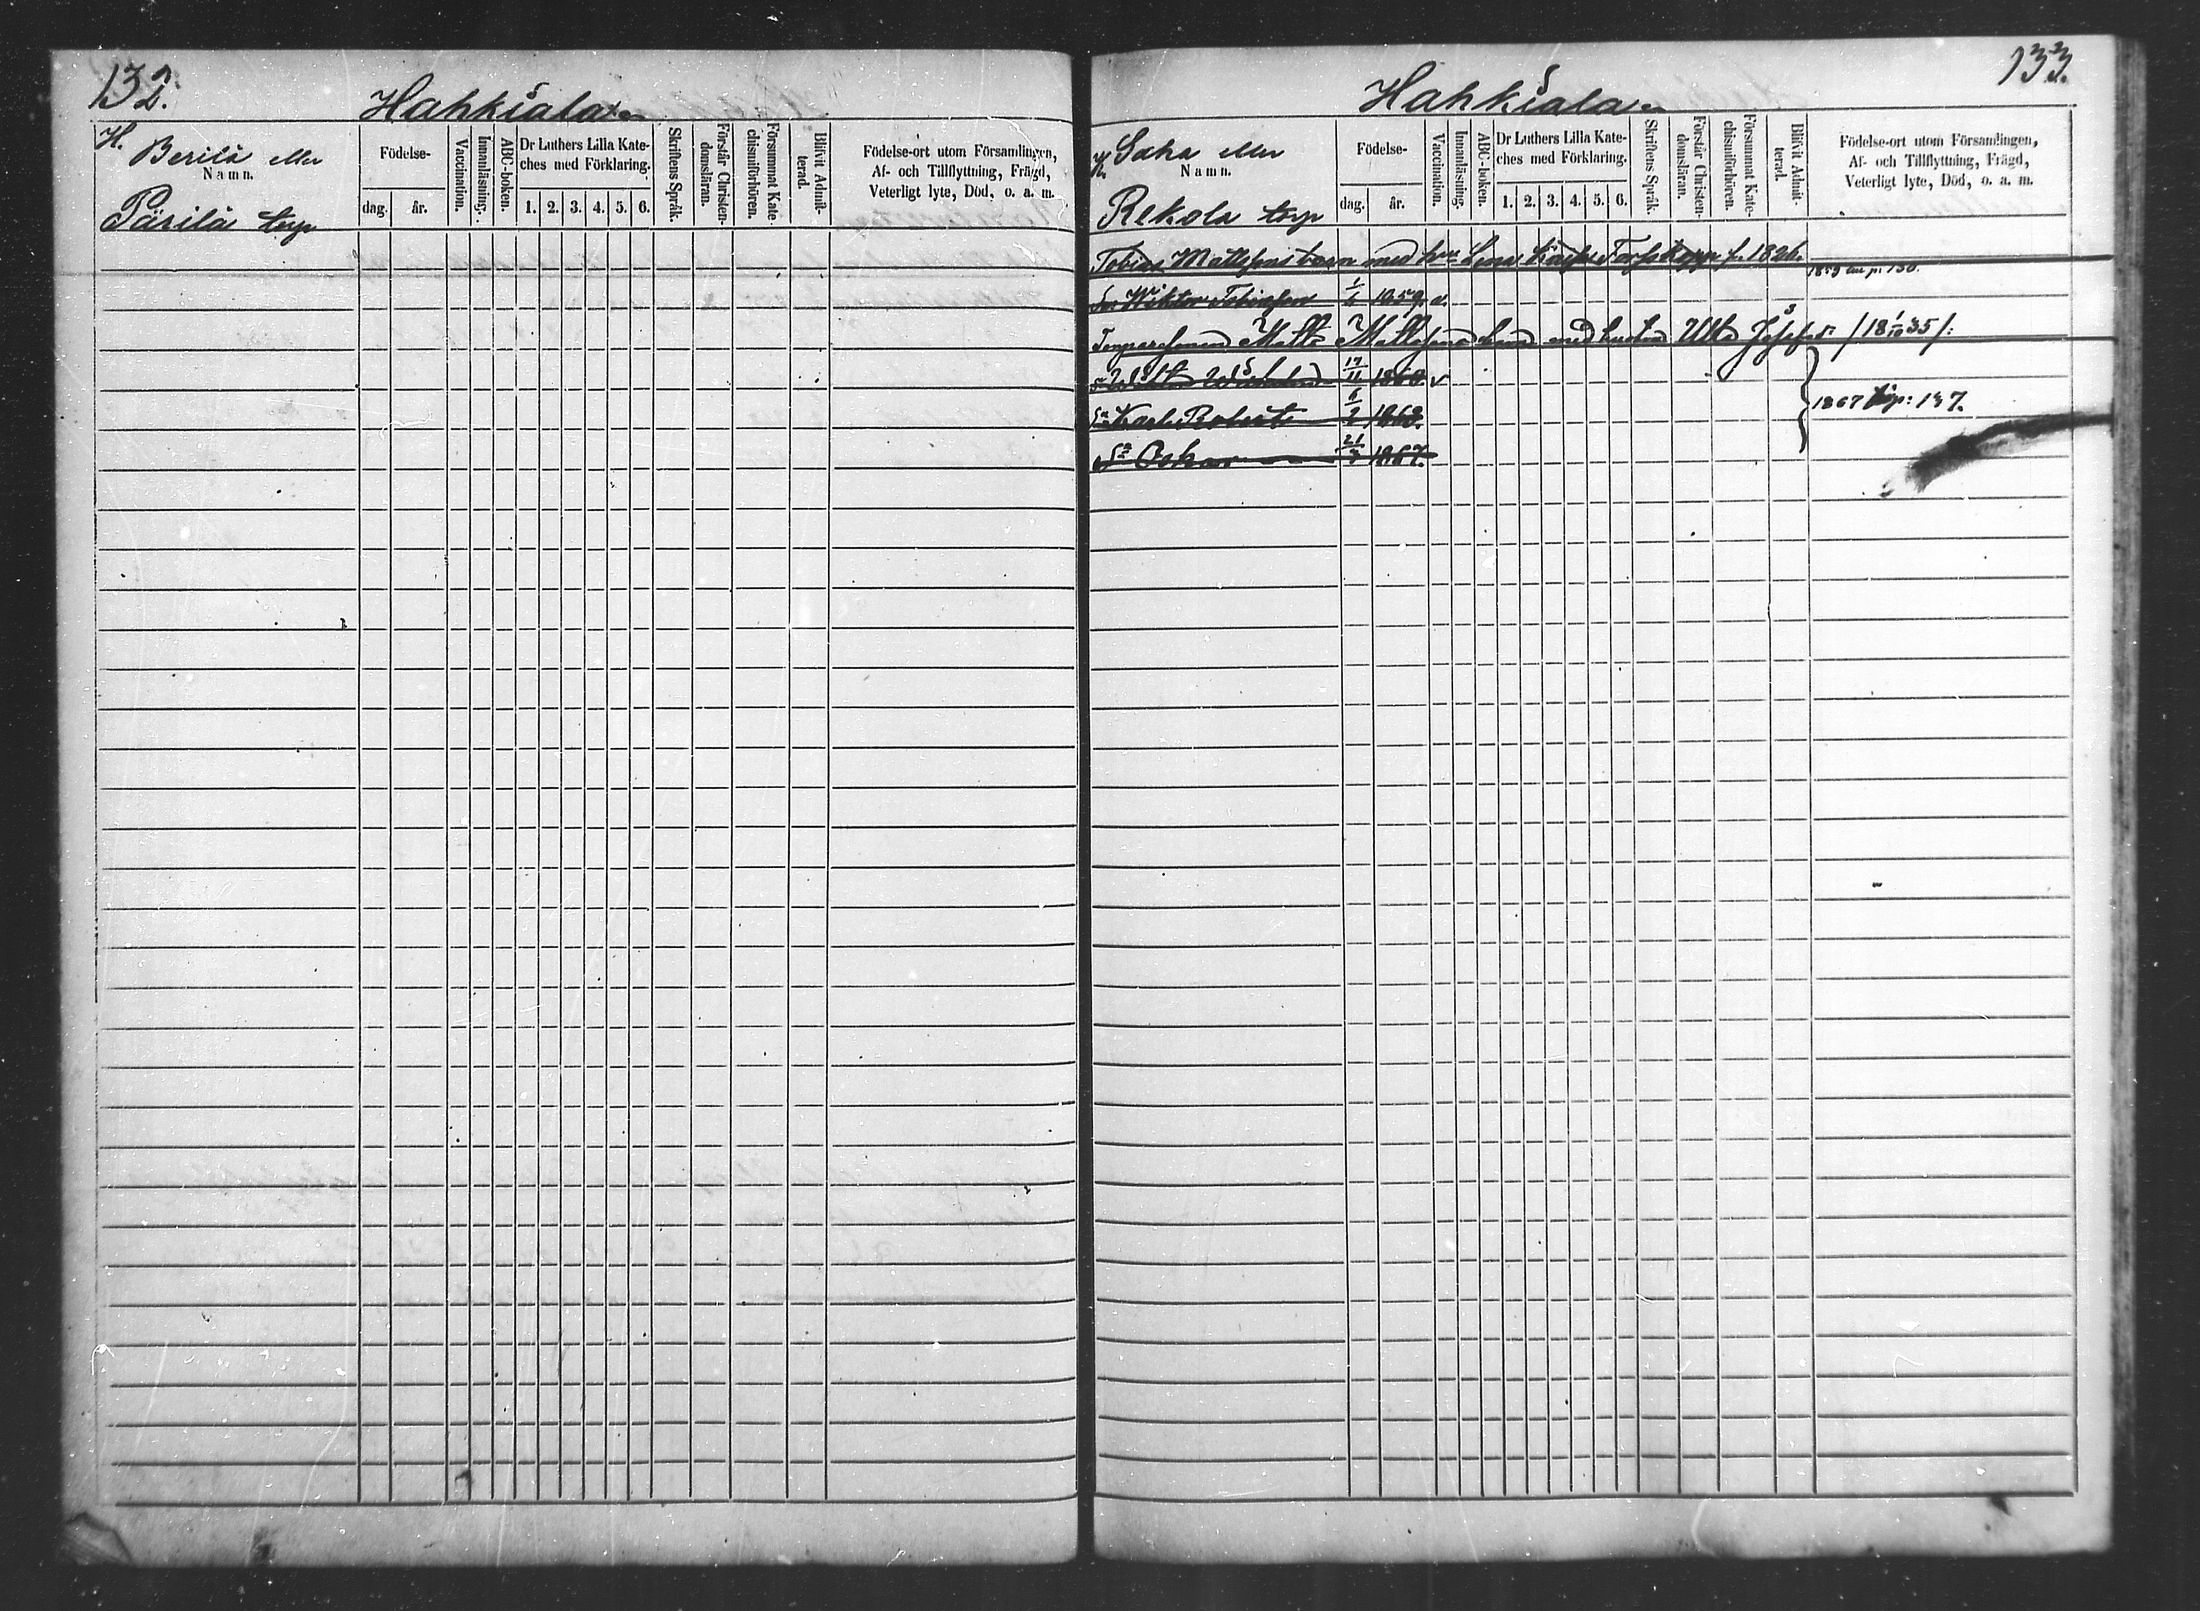 132.
Hahkiala
H. Berilä eller
Namn.
Pärilä torp
Födelse-
dag. år.
Vaccination.
Innanläsning.
ABC-boken.
Dr Luthers Lilla Kate-
ches med Förklaring.
1. 2. 3. 4. 5. 6.
Skriftens Språk.
Förstår Christen-
domsläran.
Försummat Kate-
chismiförhören.
Blifvit Admit-
terad.
Födelse-ort utom Församlingen,
Af- och Tillflyttning, Frägd,
Veterligt lyte, Död, o. a. m.
133.
Hahkiala
H. Saka eller
Namn.
Rekola torp
Födelse-
dag. år.
Vaccination.
Innanläsning.
ABC-boken.
Dr Luthers Lilla Kate-
ches med Förklaring.
1. 2. 3. 4. 5. 6.
Skriftens Språk.
Förstår Christen-
domsläran.
Försummat Kate-
chismiförhören.
Blifvit Admit-
terad.
Födelse-ort utom Församlingen,
Af- och Tillflyttning, Frägd,
Veterligt lyte, Död, o. a. m.
Tobias Mattssons barn med Lena f. 1826.
Sn Wiktor Tobiasson 1859. v. 1859 p. 130.
Matts Mattssons barn med hustru Ulla /18 1/10 35/:
Wilhelm 17/11 1860 v
Sn Karl Robert 6/2 1863. 1867 p: 137.
Sn Oskar 21/7 1867.